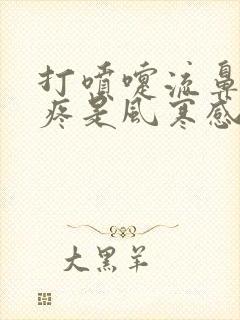 打噴嚏流鼻
疼是風寒感
大黑羊